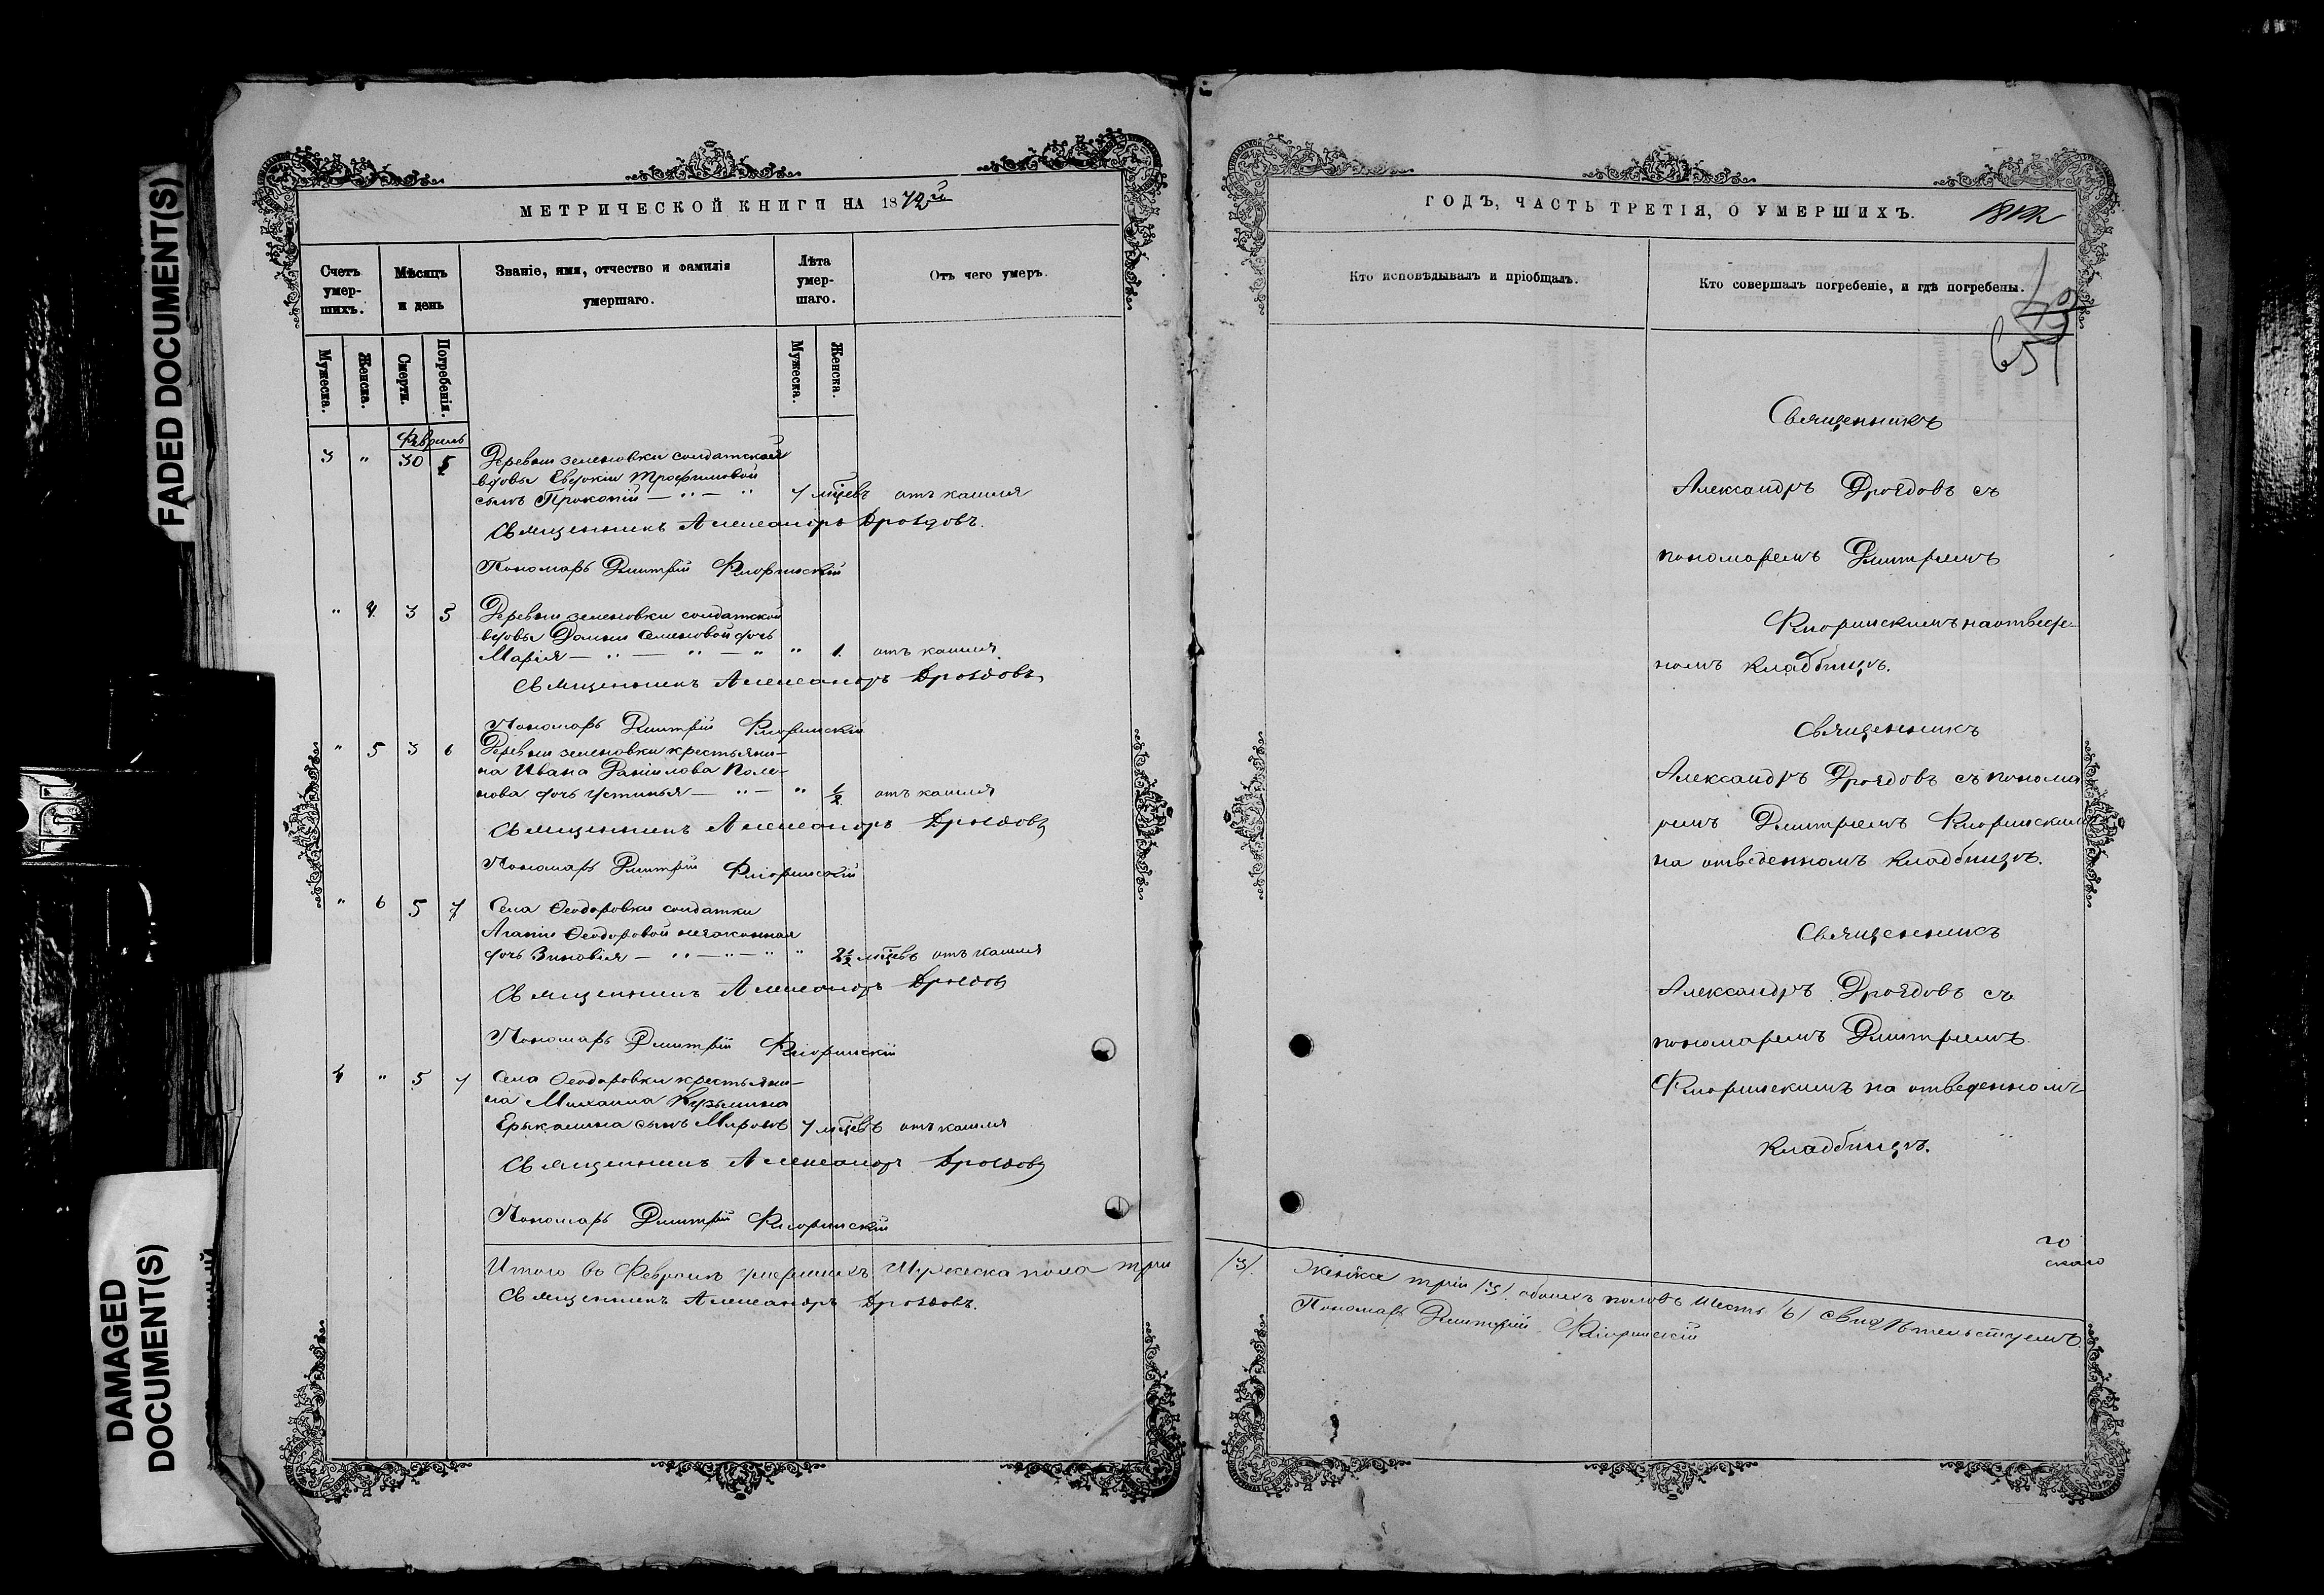 FADED DOCUMENT(S)
DAMAGED
DOCUMENT(S)
МЕТРИЧЕСКОЙ КНИГИ НА 1872й
Счетъ
умер-
шихъ.
Мѣсяцъ
и день
Званіе, имя, отчество и фамилія
умершаго.
Лѣта
умер-
шаго.
Отъ чего умеръ.
Мужеска.
Женска.
Смерти.
Погребенія.
Мужеска.
Женска.
Февраль
3 " 30 5 Деревни Зеленовки солдатской
вдовы Евдокіи Трофимовой
сынъ Прокопій — " — " 7 мцевъ отъ кашля
Священникъ Александръ Дроздовъ.
Пономарь Дмитрій Флоринскій
" 4 3 5 Деревни Зеленовки солдатской
вдовы Домны Семеновой дочь
Марія — " — " — " " 1. отъ кашля
Священникъ Александръ Дроздовъ
Пономарь Дмитрій Флоринскій
" 5 3 6 Деревни Зеленовки крестьяни-
на Ивана Данилова Поле-
нова дочь Устинья — " — " ½ отъ кашля
Священникъ Александръ Дроздовъ
Пономарь Дмитрій Флоринскій
" 6 5 7 Села Ѳеодоровки солдатки
Агапіи Ѳеодоровой незаконная
дочь Зиновія — " — " — " " 2½ мцевъ отъ кашля
Священникъ Александръ Дроздовъ
Пономарь Дмитрій Флоринскій
4 " 5 7 Села Ѳеодоровки крестьяни-
на Михаила Кузьмина
Ерыкалина сынъ Миронъ 7 мцевъ отъ кашля
Священникъ Александръ Дроздовъ
Пономарь Дмитрій Флоринскій
Итого въ Февралѣ умершихъ Мужеска пола три
Священникъ Александръ Дроздовъ.
ГОДЪ, ЧАСТЬ ТРЕТІЯ, О УМЕРШИХЪ.
Кто исповѣдывалъ и пріобщалъ.
Кто совершалъ погребеніе, и гдѣ погребены.
65
Священникъ
Александръ Дроздовъ съ
пономаремъ Дмитріемъ
Флоринскимъ на отведе-
номъ кладбищѣ.
Священникъ
Александръ Дроздовъ съ понома
ремъ Дмитріемъ Флоринскимъ
на отведенномъ кладбищѣ.
Священникъ
Александръ Дроздовъ съ
пономаремъ Дмитріемъ
Флоринскимъ на отведенномъ
кладбищѣ.
/3/. Женска три /3/. обоихъ половъ шесть /6/ свидѣтельствуемъ
Пономарь Дмитрій Флоринскій